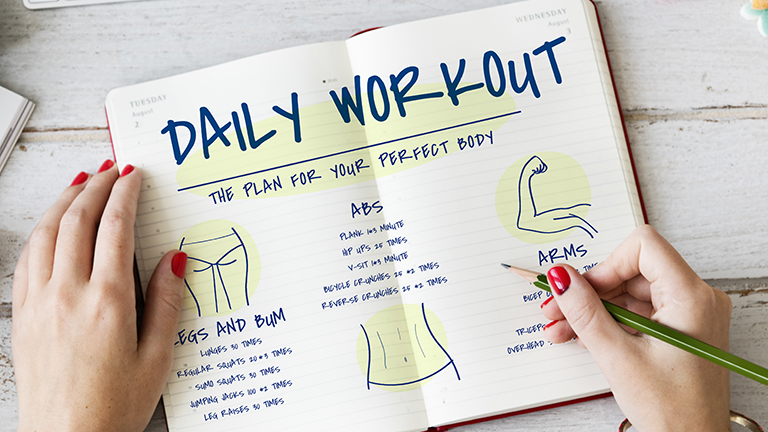 TUESDAY
August
2
WEDNESDAY
August
3
DAILY WORKOUT
THE PLAN FOR YOUR PERFECT BODY
LEGS AND BUM
LUNGES 30 TIMES
REGULAR SQUATS 20*3 TIMES
SUMO SQUATS 30 TIMES
JUMPING JACKS 100*2 TIMES
LEG RAISES 30 TIMES
ABS
PLANK 1*3 MINUTE
HIP UPS 25 TIMES
V-SIT 1*3 MINUTE
BICYCLE CRUNCHES 25*2 TIMES
REVERSE CRUNCHES 25*2 TIMES
ARMS
BICEP
TRICEPS
OVERHEAD